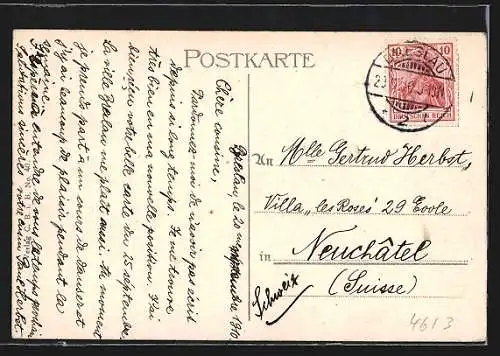 POSTKARTE
BRESLAU
10 10
DEUTSCHES REICH
An Mlle Gertrud Herbst,
Villa „les Roses" 29 Evole
in Neuchâtel
(Suisse)
Schweiz
4613
Breslau le 20 1910
Chère cousine,
Pardonnez moi de n'avoir pas écrit
depuis si long temps. Je me trouve
très bien en ma nouvelle position. J'ai
bien reçu votre belle carte du 15 septembre.
La ville Breslau me plaît aussi. Au moment
je prends part à un cours de danse et
j'y ai beaucoup de plaisir pendant la
semaine.
J'espère entendre de vous
Salutations sincères votre cousin